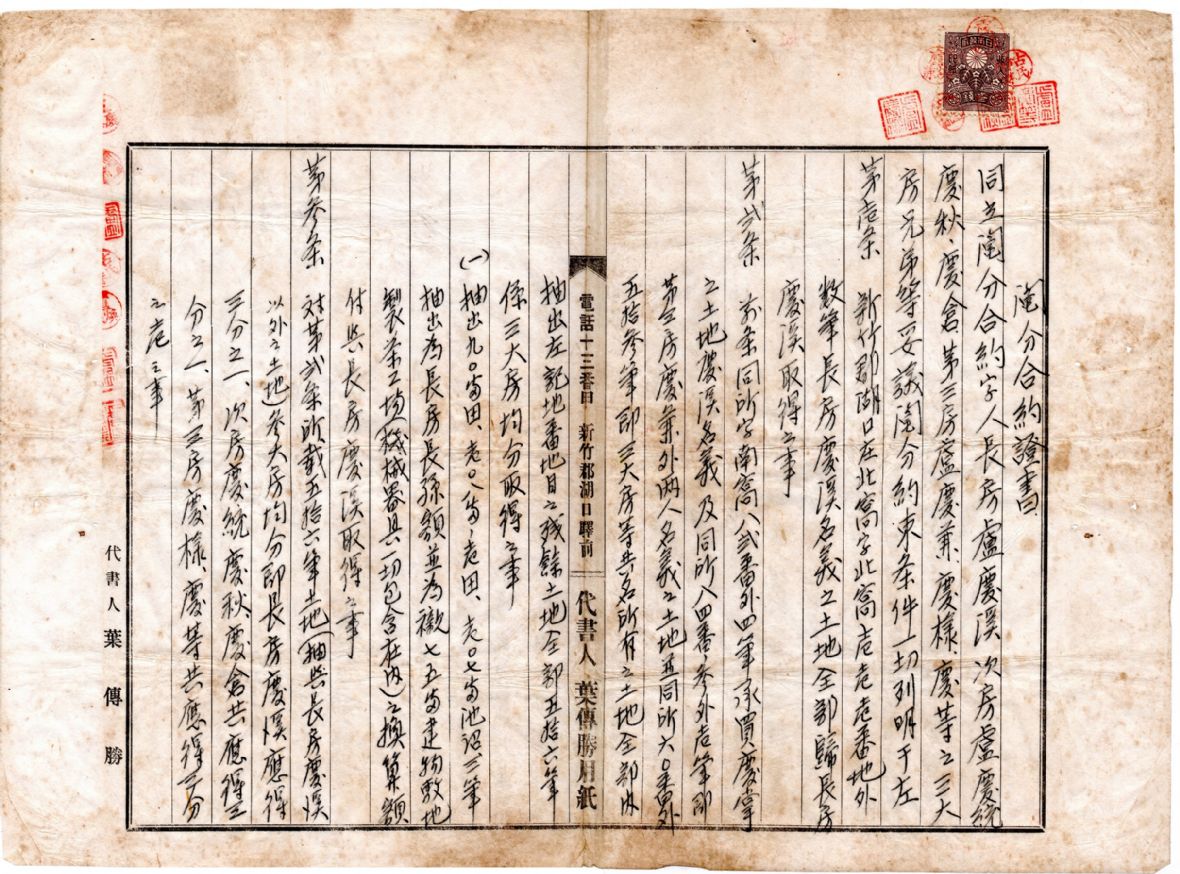 鬮分合約證書
同立鬮分合約字人長房盧慶溪次房盧慶統
慶秋、慶倉第三房盧慶兼、慶樣、慶等之三大
房兄弟等妥議鬮分約束条件一切列明于左
第壱条 新竹郡湖口庄北窩字北窩壱壱壱番地外
数筆長房慶溪名義之土地全部歸長房
慶溪取得之事
第弍条 前条同所字南窩八弍番外四筆承買慶掌
之土地慶溪名義及同所八四番ノ参外壱筆即
第三房慶兼外两人名義之土地並同所六〇番外
五拾参筆即三大房等共名所有之土地全部内
抽出左記地番地目之残餘土地全部五拾六筆
係三大房均分取得之事
(一)抽出九〇番田、壱〇八番ノ壱田、壱〇七番池沼三筆
抽出為長房長孫額並為襯七五番建物敷地
製茶工塲(機械器具一切包含在内)之換算額
付與長房慶溪取得之事
第参条 対第弍条所載五拾六筆土地(抽與長房慶溪
以外之土地)参大房均分即長房慶溪應得
三分之一、次房慶統慶秋、慶倉共應得三
分之一、第三房慶樣、慶等共應得三分
之壱之事
電話十三番 新竹郡湖口驛前 代書人 葉傳勝用紙
代書人 葉傳勝